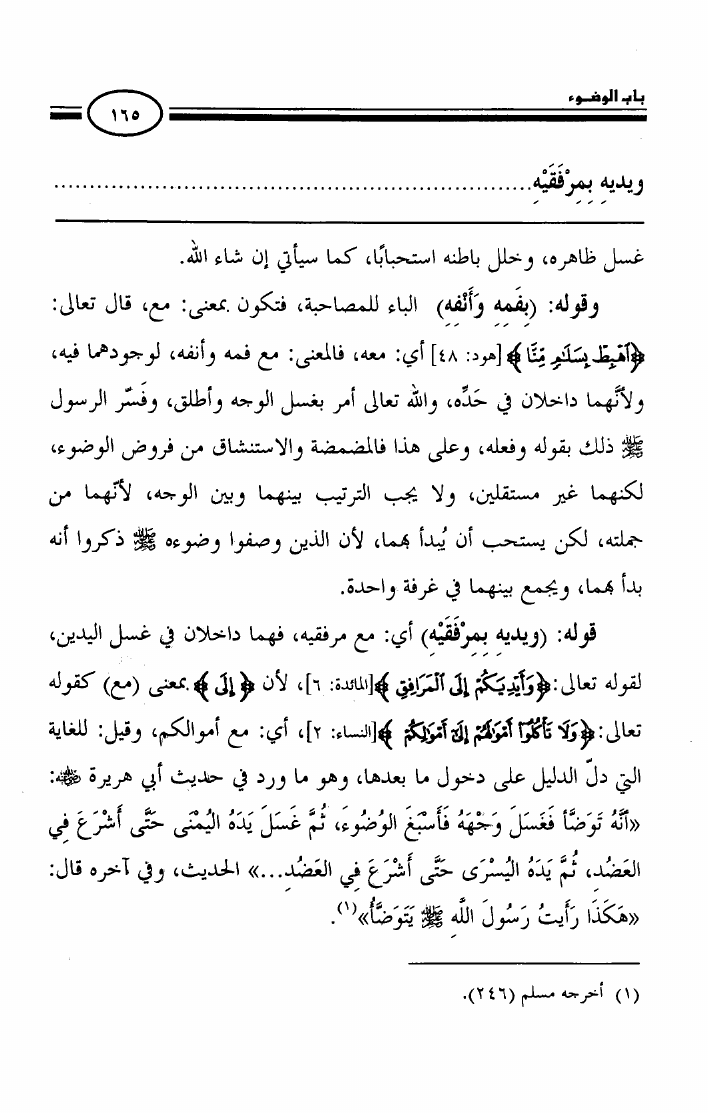 باب الوضوء
١٦٥
ويديهِ بِمِرْفَقَيْهِ..................................................................
غسل ظاهره، وخلل باطنه استحبابًا، كما سيأتي إن شاء الله.
وقوله: (بِفَمِهِ وَأَنْفِهِ) الباء للمصاحبة، فتكون بمعنى: مع، قال تعالى:
﴿ٱهْبِطْ بِسَلَٰمٍ مِّنَّا﴾ [هود: ٤٨] أي: معه، فالمعنى: مع فمه وأنفه، لوجودهما فيه،
ولأنَّهما داخلان في حَدِّه، والله تعالى أمر بغسل الوجه وأطلق، وفَسَّر الرسول
ﷺ ذلك بقوله وفعله، وعلى هذا فالمضمضة والاستنشاق من فروض الوضوء،
لكنهما غير مستقلين، ولا يجب الترتيب بينهما وبين الوجه، لأنَّهما من
جملته، لكن يستحب أن يُبدأ بهما، لأن الذين وصفوا وضوءه ﷺ ذكروا أنه
بدأ بهما، ويجمع بينهما في غرفة واحدة.
قوله: (ويديهِ بِمِرْفَقَيْهِ) أي: مع مرفقيه، فهما داخلان في غسل اليدين،
لقوله تعالى: ﴿وَأَيْدِيَكُمْ إِلَى ٱلْمَرَافِقِ﴾ [المائدة: ٦]، لأن ﴿إِلَى﴾ بمعنى (مع) كقوله
تعالى: ﴿وَلَا تَأْكُلُوٓا۟ أَمْوَٰلَهُمْ إِلَىٰٓ أَمْوَٰلِكُمْ﴾ [النساء: ٢]، أي: مع أموالكم، وقيل: للغاية
التي دلّ الدليل على دخول ما بعدها، وهو ما ورد في حديث أبي هريرة ﷺ:
«أَنَّهُ تَوَضَّأَ فَغَسَلَ وَجْهَهُ فَأَسْبَغَ الوُضُوءَ، ثُمَّ غَسَلَ يَدَهُ اليُمْنَى حَتَّى أَشْرَعَ فِي
العَضُدِ، ثُمَّ يَدَهُ اليُسْرَى حَتَّى أَشْرَعَ فِي العَضُدِ...» الحديث، وفي آخره قال:
«هَكَذَا رَأَيتُ رَسُولَ اللَّهِ ﷺ يَتَوَضَّأُ»(١).
(١) أخرجه مسلم (٢٤٦).